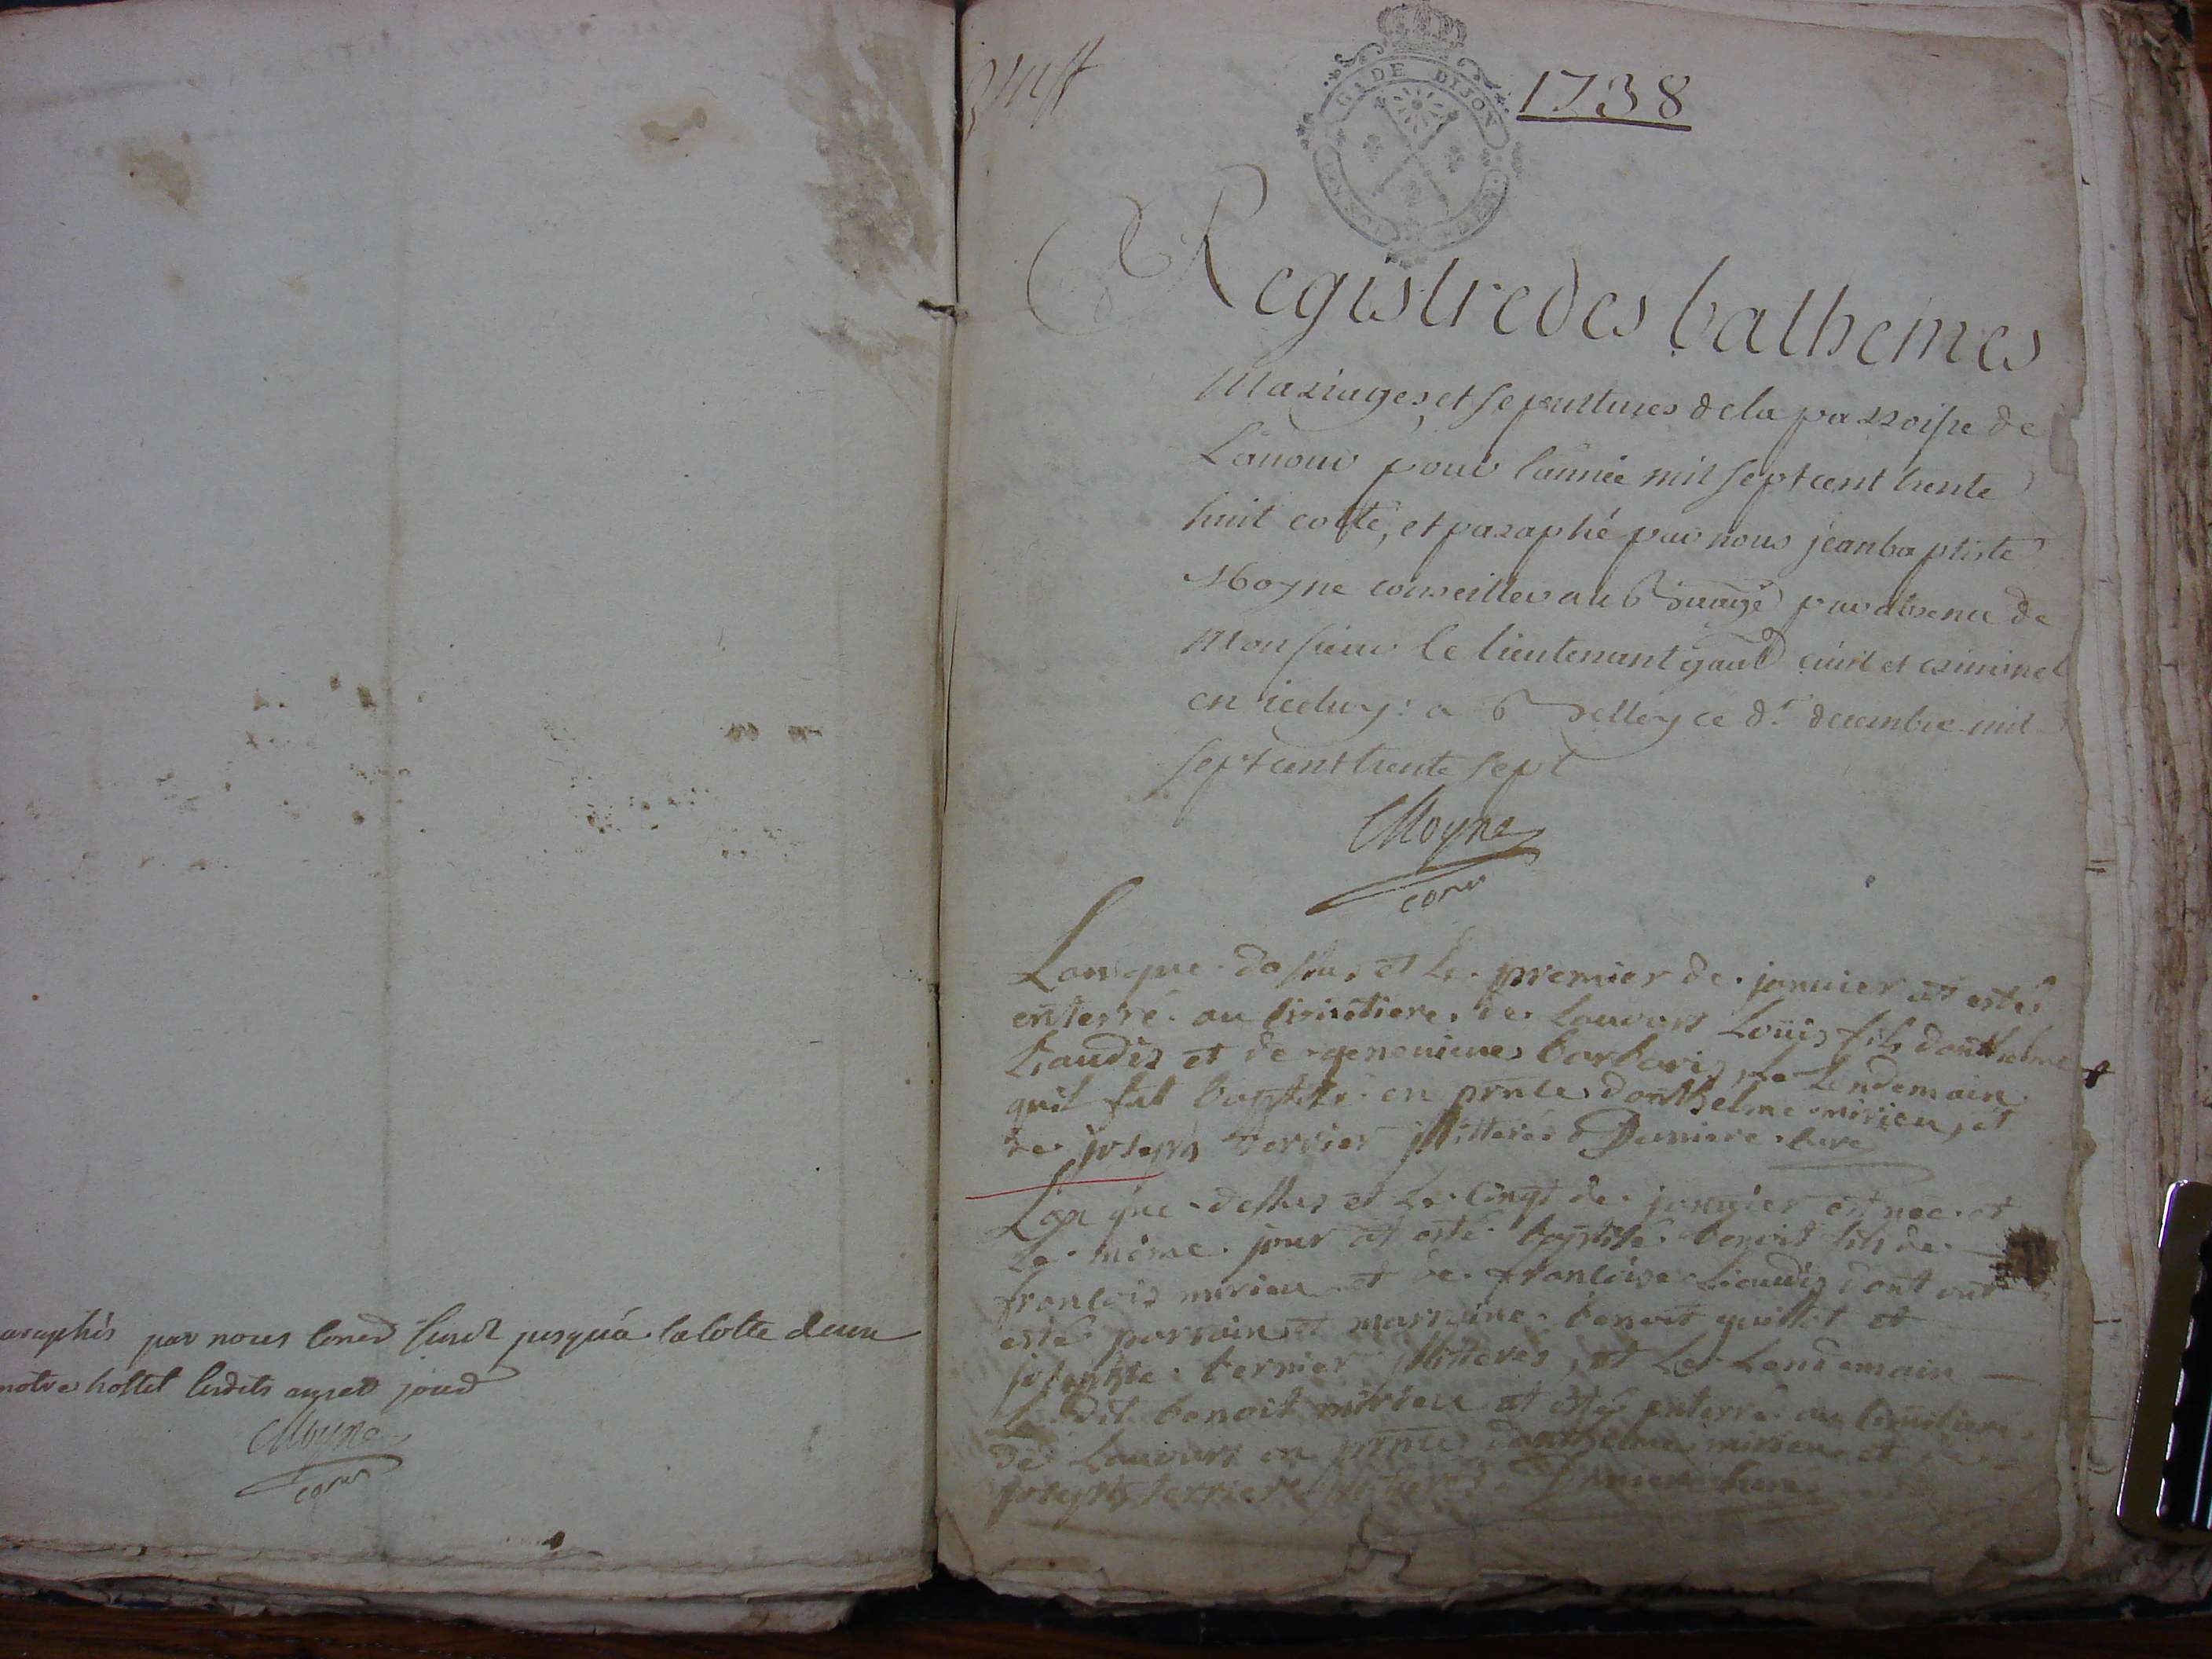 araphés par nous cons.er susd.t jusqu'a la cotte deux
notre hostel lesdits an et jour
Moyne
con.er
1738
GI DE DIJON
Registre des batheme s
Mariages, et sepultures de la parroisse de
Lauour pour l'année mil sept cent trente
huit cotté, et paraphé par nous jean baptiste
Moyne conseiller au Bailliage par absence de
Monsieur le lieutenant gñal ciuil et criminel
en iceluy: a Belley ce decembre mil
sept cent trente sept
Moyne
con.er
L'an que dessus et le premier de januier at estes
enterré au cimetiere de Lauours Louis fils d'anthelme
et de geneuieue le lendemain
quil fut baptisé en pñnce d'anthelme mirieu, et
de joseph terrier illitterés Dumiere cure
L'an que dessus et le cinq de januier est nee et
le même jour at esté baptisé benoit fils de
françois mirieu et de françoise dont ont
esté parrain et marraine benoit guillot et
josephte bernier illitterés, et le lendemain
le dit benoit mirieu at esté enterré au cimetiere
de Lauours en pñnce d'anthelme mirieu et de
joseph terrier illitterés Dumiere cure